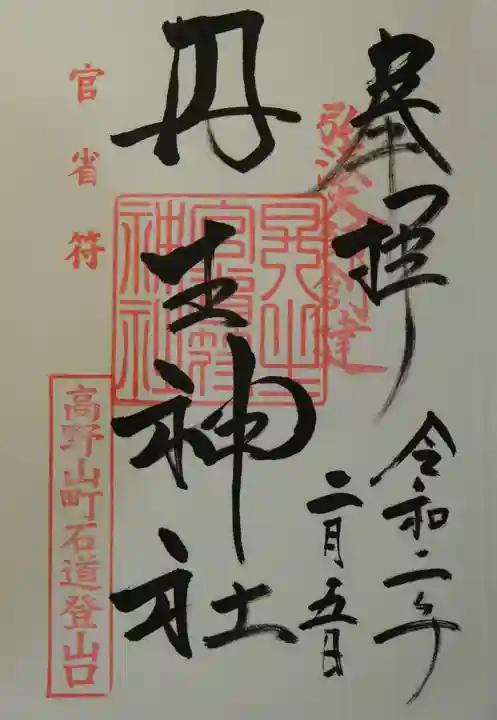 奉拝
弘法大師創建
令和二年
二月五日
丹生神社
官省符
高野山町石道登山口